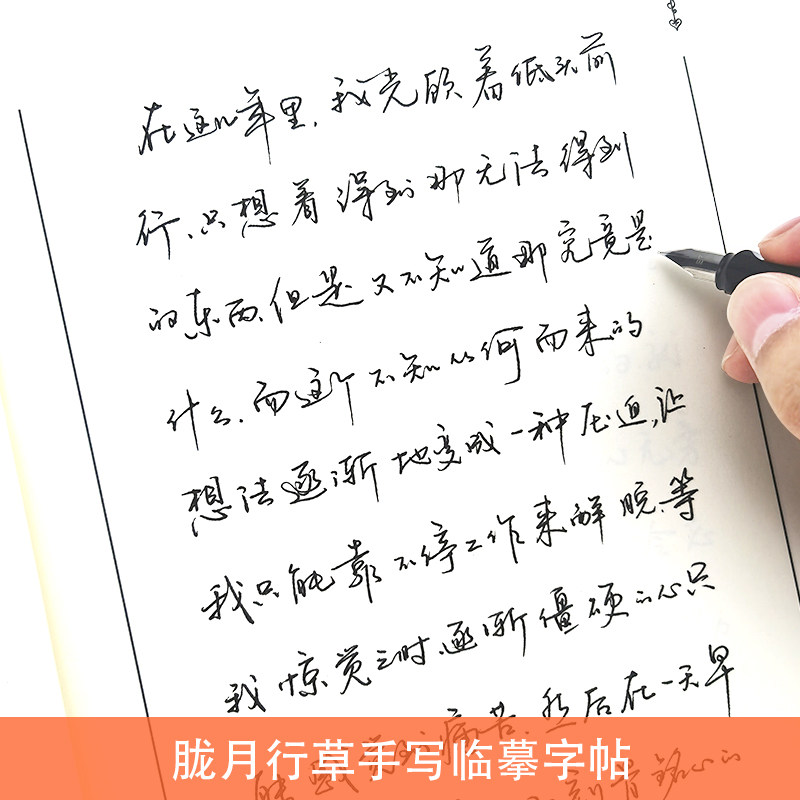 在这几年里，我光顾着低头前
行、只想着得到那无法得到
的东西、但是又不知道那究竟是
什么、而这个不知从何而来的
想法逐渐地变成一种压迫，让
我只能靠不停工作来解脱、等
我惊觉之时、逐渐僵硬的心只
能感觉到痛苦、然后在一天早
刻骨铭心的
胧月行草手写临摹字帖